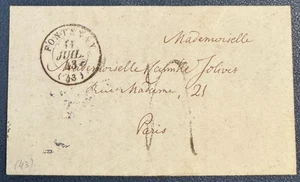 FONTENAY
11
JUIL.
43
(73)
Mademoiselle
Mademoiselle Camille Jolivet
Rue Madame, 21
Paris
(43)